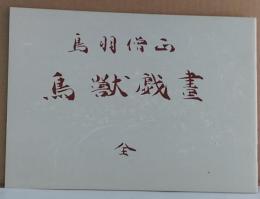 鳥羽僧正
鳥獣戯畫
全